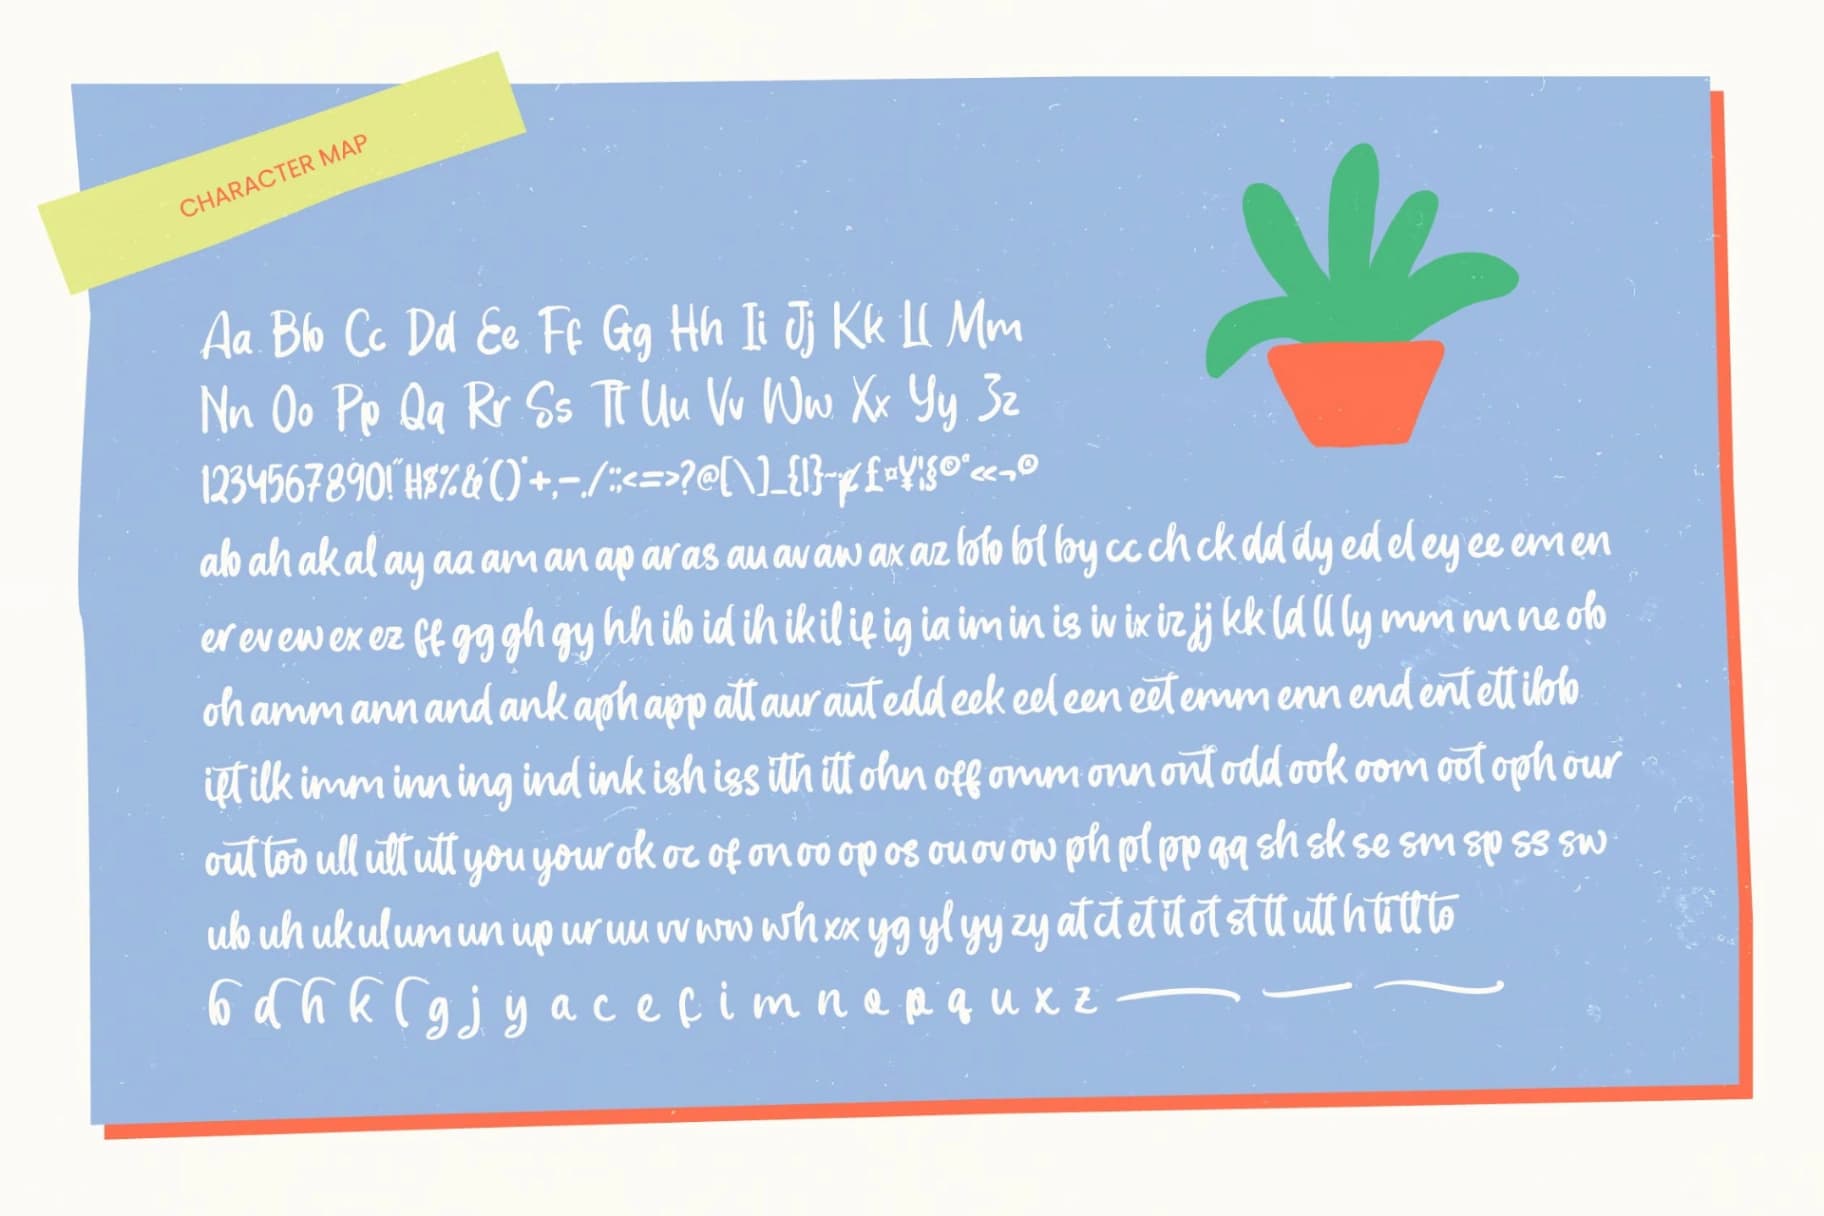 CHARACTER MAP
Aa Bb Cc Dd Ee Ff Gg Hh Ii Jj Kk Ll Mm
Nn Oo Pp Qq Rr Ss Tt Uu Vv Ww Xx Yy Zz
1234567890!"#$%&'()*+,-./:;<=>?@[\]_{|}~¢£¤¥¦§©ª«¬®
ab ah ak al ay aa am an ap ar as au av aw ax az bb bl by cc ch ck dd dy ed el ey ee em en
er ev ew ex ez ff gg gh gy hh ib id ih ik il if ig ia im in is iv ix iz jj kk ld ll ly mm nn ne ob
oh amm ann and ank aph app att aur aut edd eek eel een eet emm enn end ent ett ibb
ift ilk imm inn ing ind ink ish iss ith itt ohn off omm onn ont odd ook oom oot oph our
out too ull ult utt you your ok oc of on oo op os ou ov ow ph pl pp qq sh sk se sm sp ss sw
ub uh uk ul um un up ur uu vv ww wh xx yg yl yy zy at ct et it ot st tt utt h ti tl tt to
b d h k l g j y a c e f i m n o p q u x z